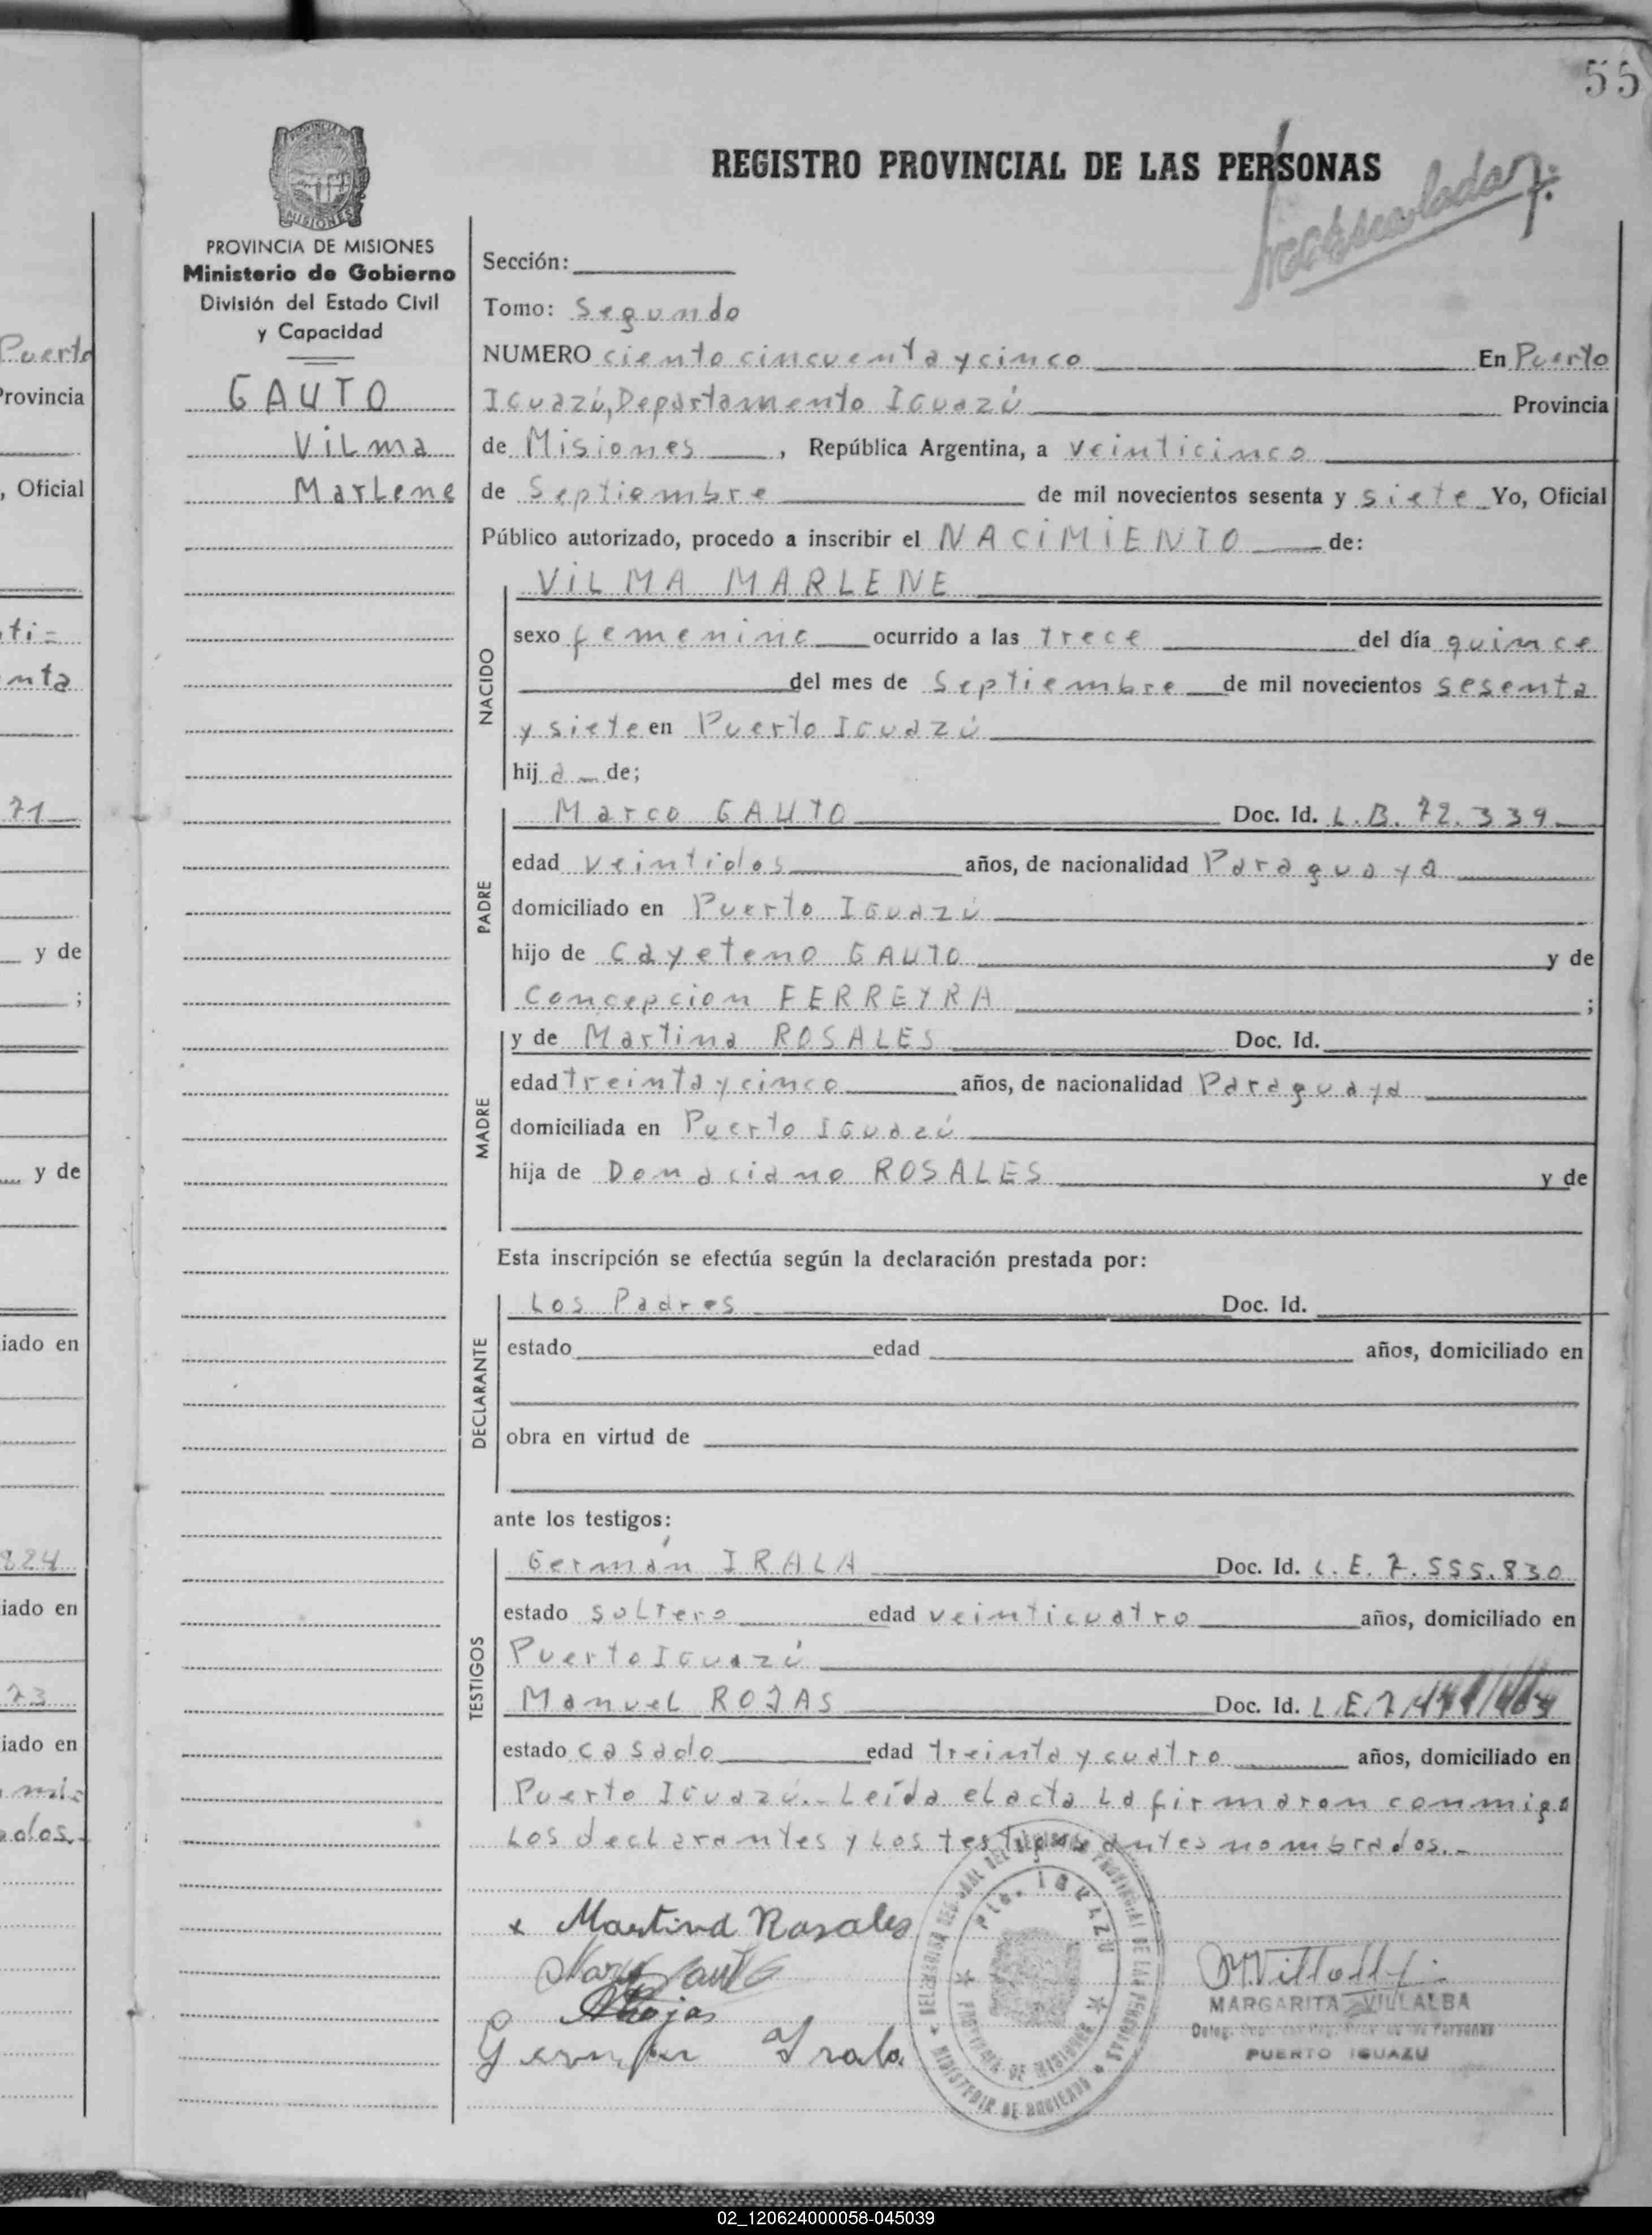 55
REGISTRO PROVINCIAL DE LAS PERSONAS
MISIONES
PROVINCIA DE MISIONES
Ministerio de Gobierno
División del Estado Civil
y Capacidad
GAUTO
Vilma
Marlene
Sección:
Tomo: Segundo
NUMERO ciento cincuenta y cinco En Puerto
Iguazú, Departamento Iguazú Provincia
de Misiones , República Argentina, a veinticinco
de Septiembre de mil novecientos sesenta y siete Yo, Oficial
Público autorizado, procedo a inscribir el NACIMIENTO de:
VILMA MARLENE
NACIDO
sexo femenino ocurrido a las trece del día quince
del mes de Septiembre de mil novecientos sesenta
y siete en Puerto Iguazú
hija de;
PADRE
Marco GAUTO Doc. Id. L.B. 72.339
edad veintidos años, de nacionalidad Paraguaya
domiciliado en Puerto Iguazú
hijo de Cayeteno GAUTO y de
Concepcion FERREYRA ;
MADRE
y de Martina ROSALES Doc. Id.
edad treinta y cinco años, de nacionalidad Paraguaya
domiciliada en Puerto Iguazú
hija de Donaciano ROSALES y de
Esta inscripción se efectúa según la declaración prestada por:
DECLARANTE
Los Padres Doc. Id.
estado edad años, domiciliado en
obra en virtud de
ante los testigos:
TESTIGOS
Germán IRALA Doc. Id. L.E. 7.555.830
estado soltero edad veinticuatro años, domiciliado en
Puerto Iguazú
Manuel ROJAS Doc. Id. L.E.7
estado casado edad treinta y cuatro años, domiciliado en
Puerto Iguazú.- Leída el acta la firmaron conmigo
los declarantes y los testigos antes nombrados.-
x Martina Rosales
Rojas
German Irala
Pto. IGUAZU
PROVINCIA DE MISIONES
MARGARITA VILLALBA
PUERTO IGUAZU
Puerto
Provincia
, Oficial
ti-
nta
71
y de
;
y de
iado en
824
iado en
73
iado en
ados.-
02_120624000058-045039